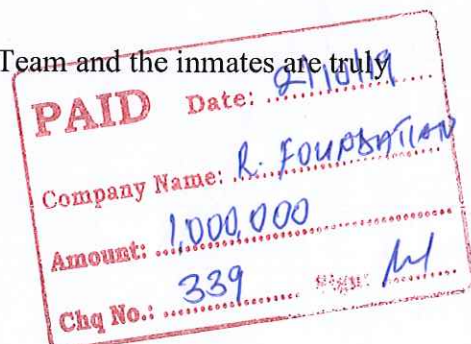 Team and the inmates are truly
PAID Date: 2/10/19
Company Name: R. FOUNDATION
Amount: 1,000,000
Chq No.: 339 Sign: